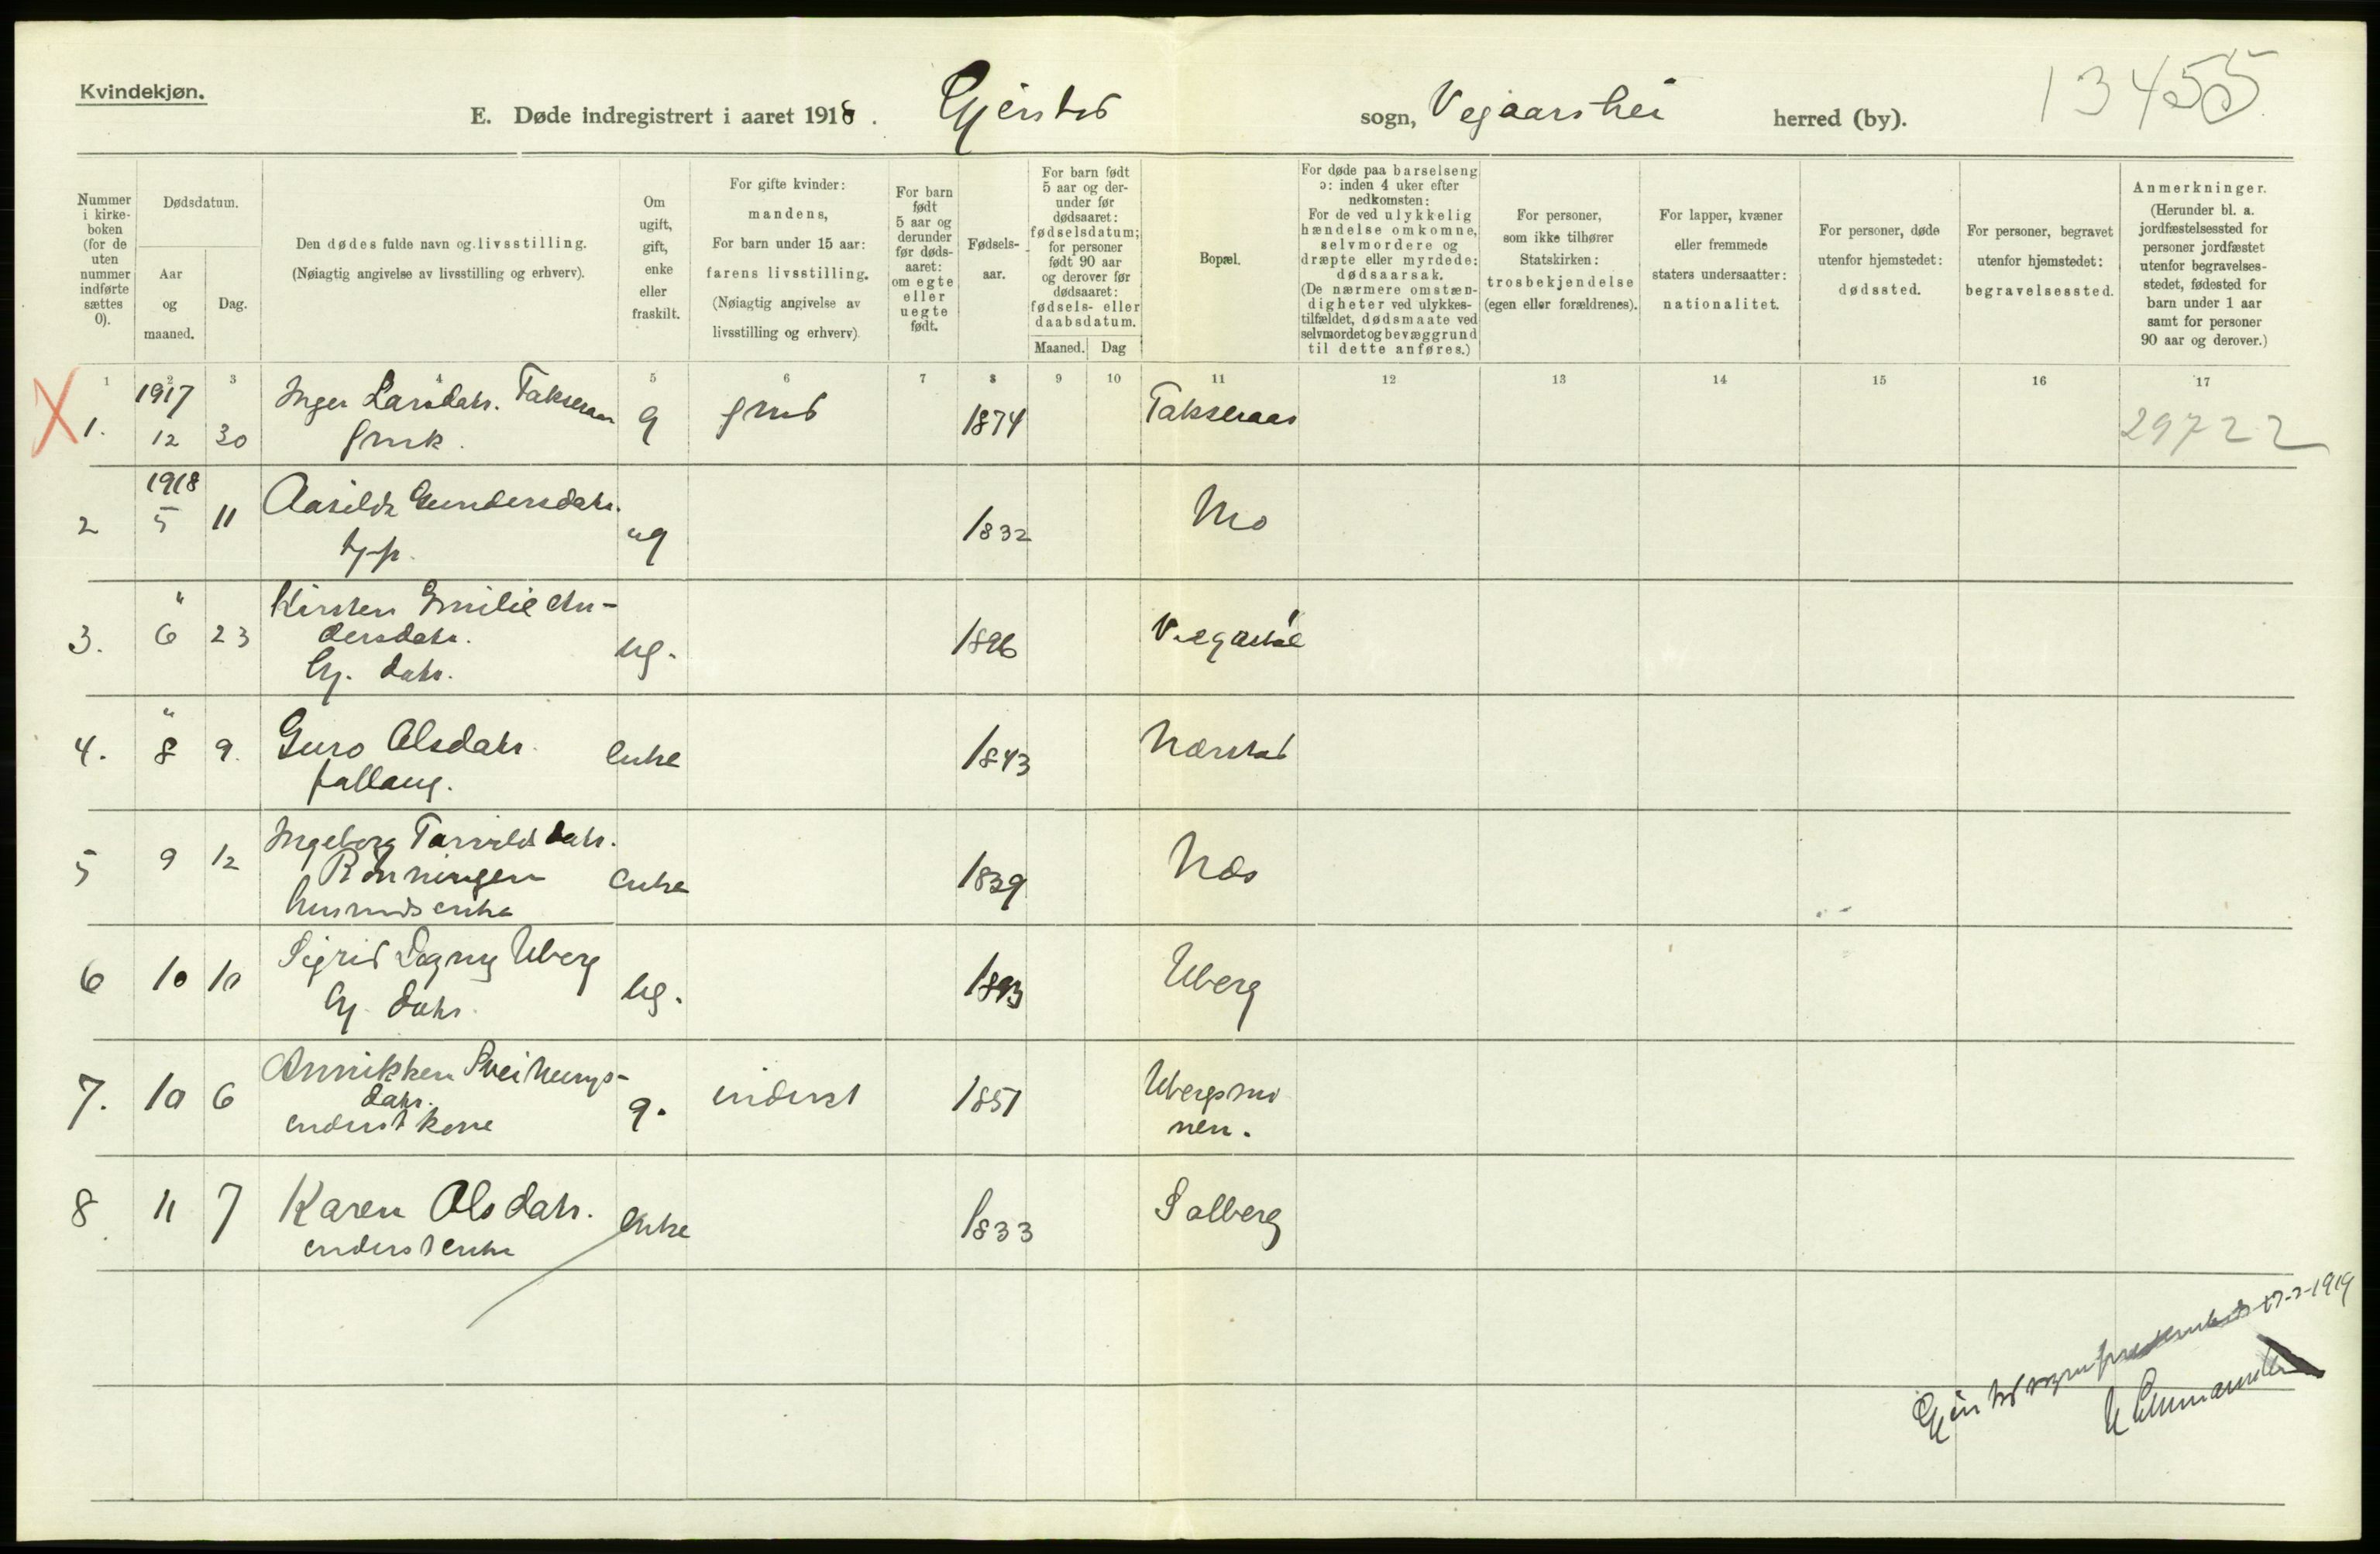 Kvindekjøn.
E. Døde indregistrert i aaret 1918. Gjerstad sogn, Vegaarshei herred (by).
13455
Nummer i kirke-boken (for de uten nummer indførte sættes 0).
Dødsdatum.
Aar og maaned.
Dag.
Den dødes fulde navn og livsstilling.
(Nøiagtig angivelse av livsstilling og erhverv).
Om ugift, gift, enke eller fraskilt.
For gifte kvinder: mandens, For barn under 15 aar: farens livsstilling. (Nøiagtig angivelse av livsstilling og erhverv)
For barn født 5 aar og derunder før døds-aaret: om egte eller uegte født.
Fødsels-aar.
For barn født 5 aar og der-under før dødsaaret: fødselsdatum; for personer født 90 aar og derover før dødsaaret: fødsels- eller daabsdatum.
Maaned.
Dag
Bopæl.
For døde paa barselseng ɔ: inden 4 uker efter nedkomsten: For de ved ulykkelig hændelse omkomne, selvmordere og dræpte eller myrdede: dødsaarsak. (De nærmere omstæn-digheter ved ulykkes-tilfældet, dødsmaate ved selvmordet og bevæggrund til dette anføres.)
For personer, som ikke tilhører Statskirken: trosbekjendelse (egen eller forældrenes).
For lapper, kvæner eller fremmede staters undersaatter: nationalitet.
For personer, døde utenfor hjemstedet: dødssted.
For personer, begravet utenfor hjemstedet: begravelsessted.
Anmerkninger. (Herunder bl. a. jordfæstelsessted for personer jordfæstet utenfor begravelses-stedet, fødested for barn under 1 aar samt for personer 90 aar og derover.)
1 2 3 4 5 6 7 8 9 10 11 12 13 14 15 16 17
X 1. 1917 12 30 Inger Larsdatr. Takseraas gmk. g gmd 1874 Takseraas 29722
2 1918 5 11 Aasild Gundersdatr. ug 1832 Mo
3. " 6 23 Kirsten Emilie An-
dersdatr.
Gj. datr. ug. 1896
4. " 8 9. Guro Olsdatr.
fattaug. enke 1843 Nærstad
5 9 12 Ingeborg Tarvildsdatr.
Rønningen
husmdsenke enke 1839 Næs
6 10 10 Sigrid Dagny Uberg
Gj. datr. ug. 1893 Uberg
7. 10 6 Annikken Sveinungs-
datr.
inderst kone g. inderst 1851 Ubergsmo
nen.
8 11 7 Karen Olsdatr.
inderstenke enke 1833 Solberg
1919